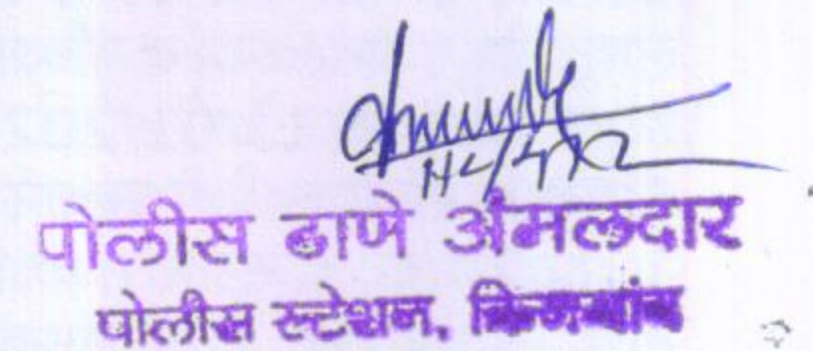 HC/472
पोलीस ठाणे अंमलदार
पोलीस स्टेशन,